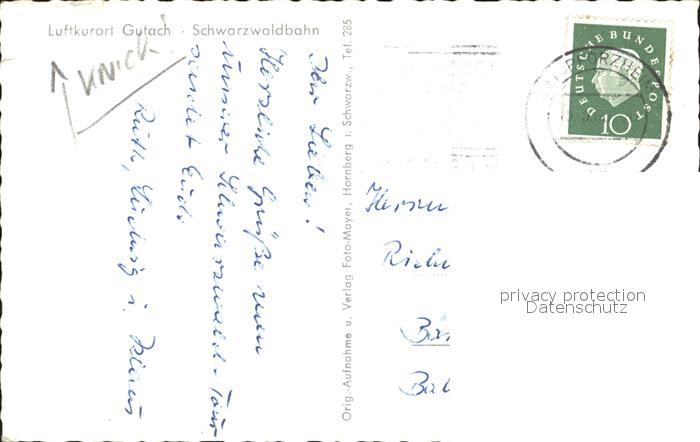 Luftkurort Gutach · Schwarzwaldbahn
Knick!
Ihr Lieben!
Herzliche Grüße von
unserer Schwarzwald-Tour
sendet Euch
Ruth, Ludwig u.
Orig.-Aufnahme u. Verlag Foto-Mayer, Hornberg i. Schwarzw., Tel. 285
DEUTSCHE BUNDESPOST
10
PFORZHEIM
Herrn
privacy protection
Datenschutz